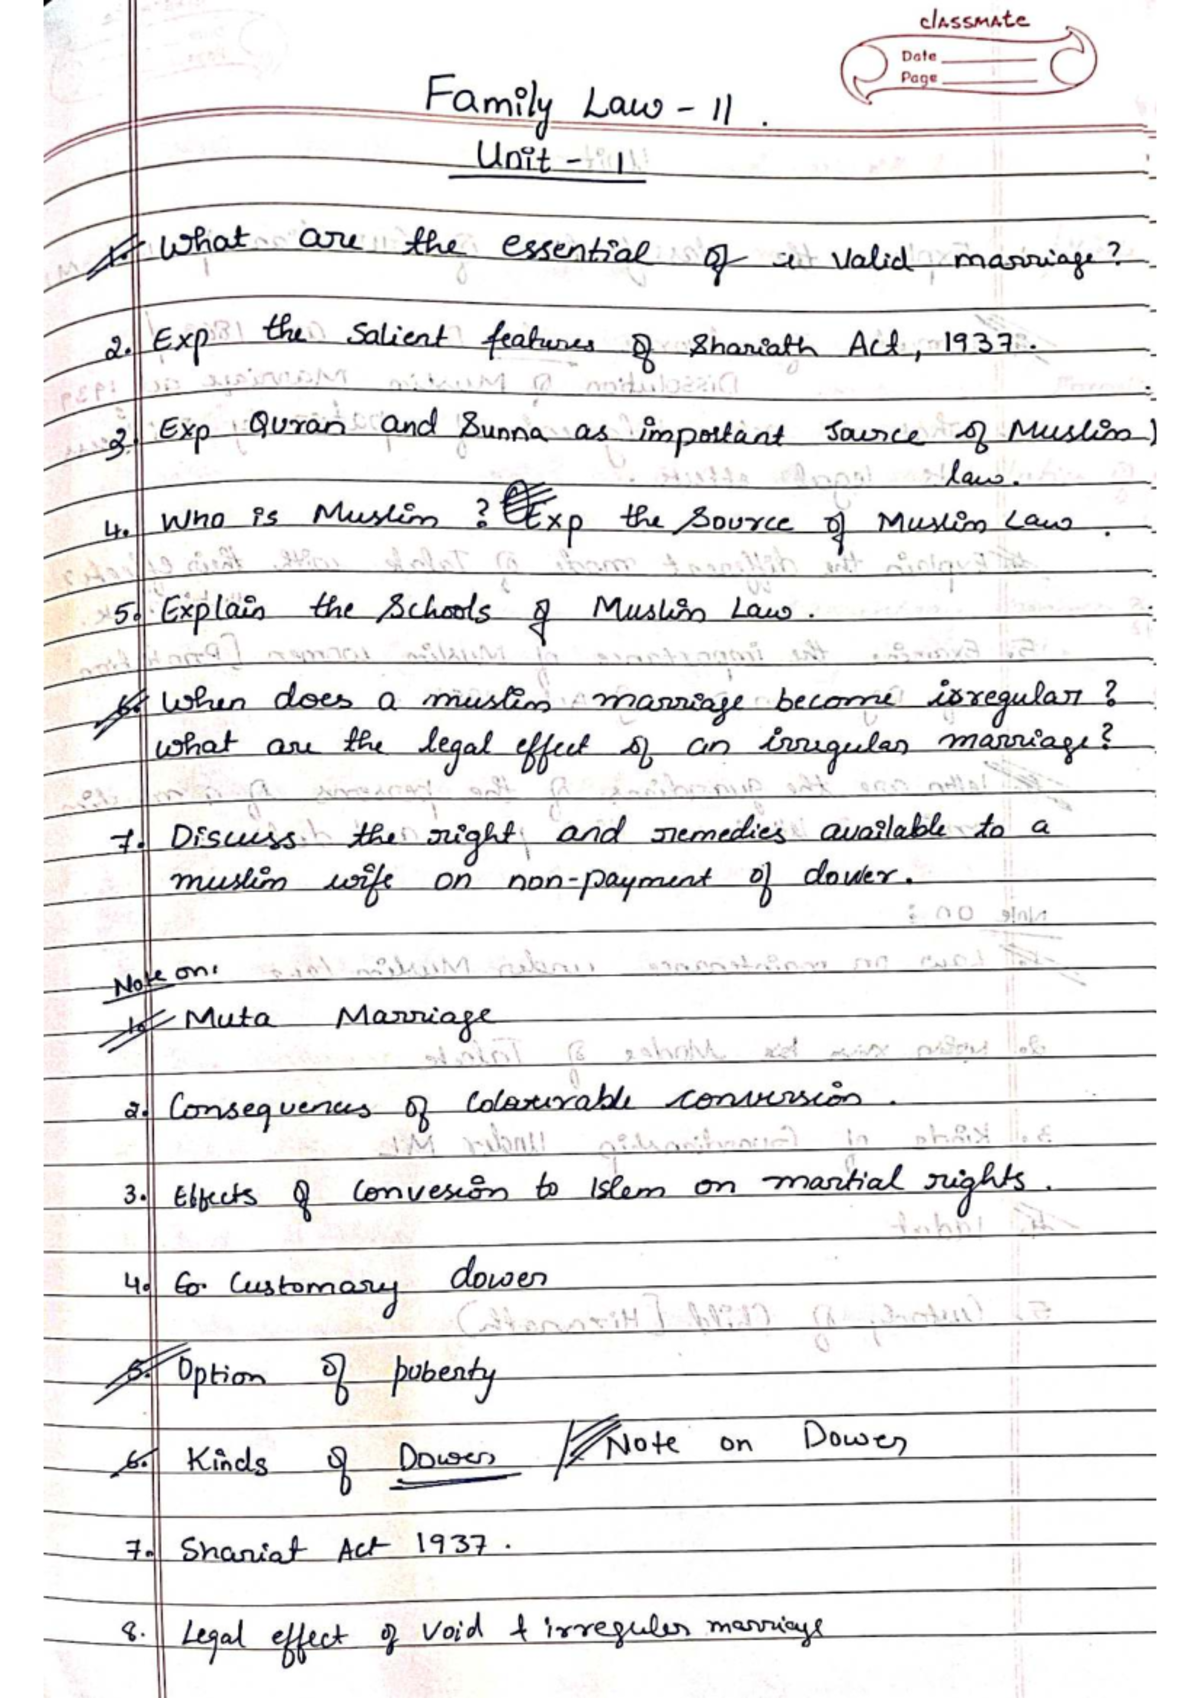 classmate
Date
Page
Family Law - II.
Unit - I
1. What are the essential of a valid marriage?
2. Exp the Salient features of Shariath Act, 1937.
3. Exp Quran and Sunna as important source of Muslim
law.
4. Who is Muslim ? Exp the Source of Muslim Law.
5. Explain the Schools of Muslim Law.
6. When does a muslim marriage become irregular?
What are the legal effect of an irregular marriage?
7. Discuss the right and remedies available to a
muslim wife on non-payment of dower.
Note on:
1. Muta Marriage
2. Consequences of Colourable conversion.
3. Effects of Convesion to Islem on martial rights.
4. Customary dower
5. Option of puberty
6. Kinds of Dower / Note on Dower
7. Shariat Act 1937.
8. Legal effect of void & irregular marriage